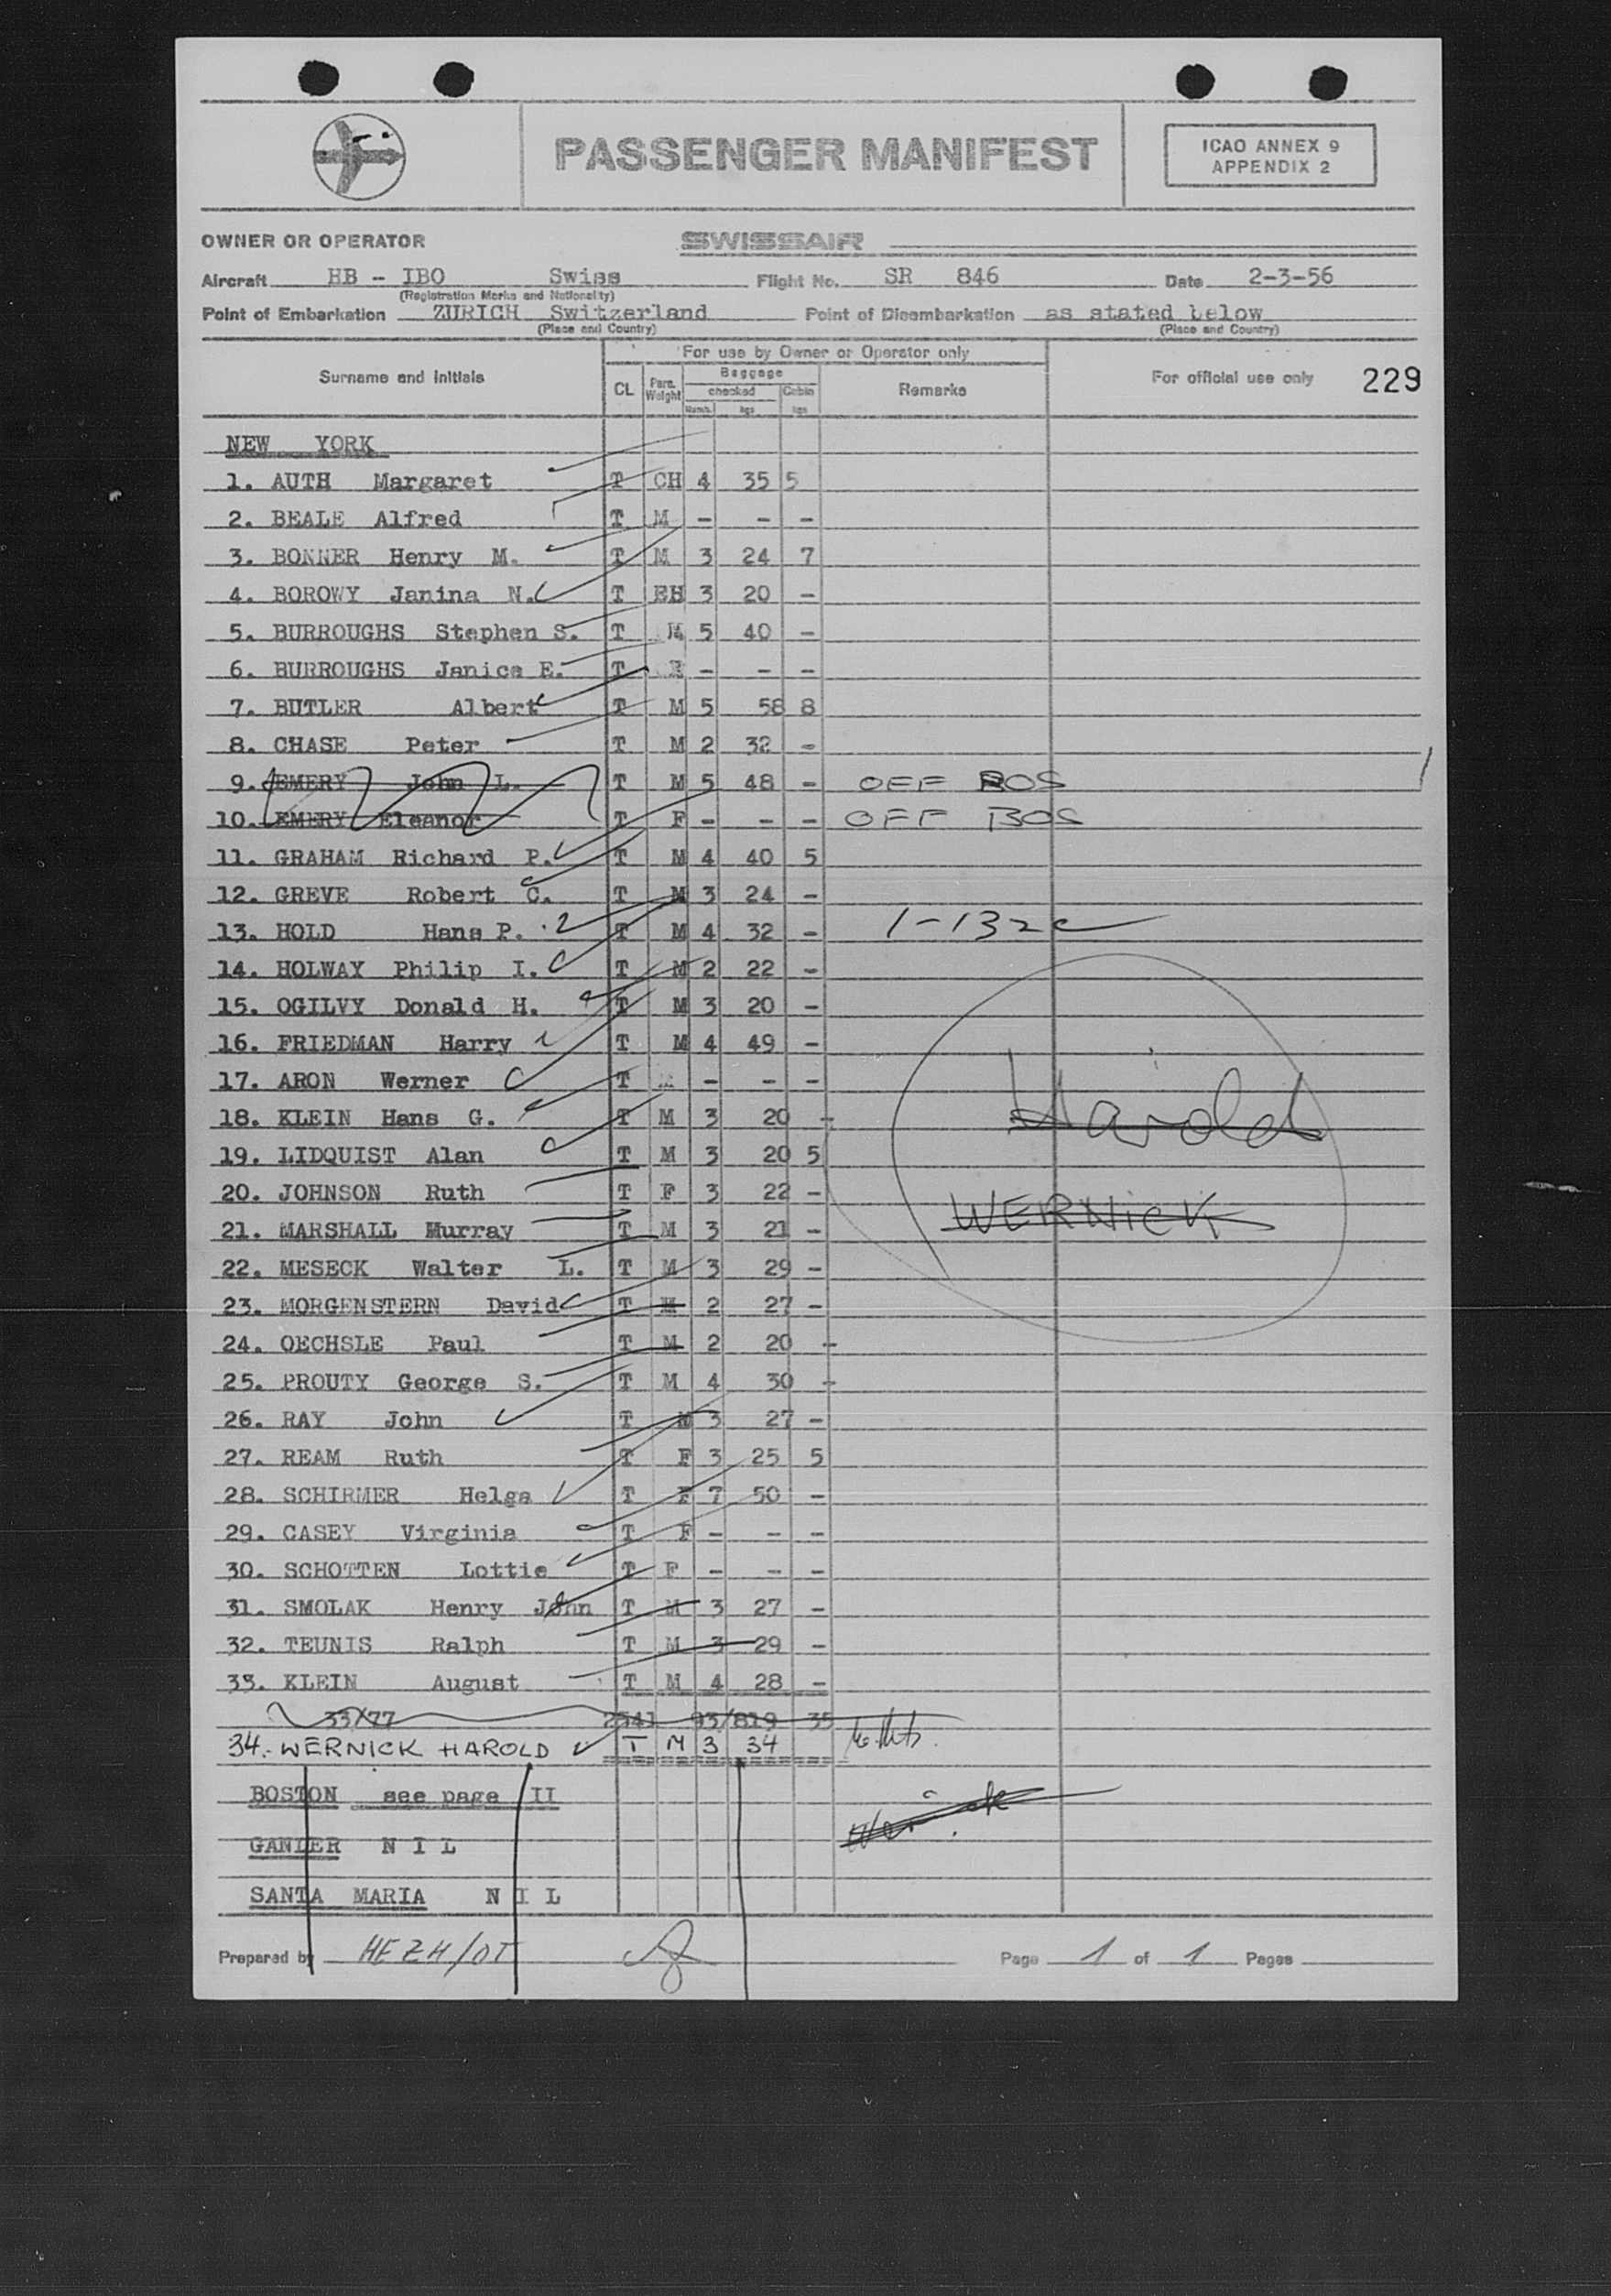 PASSENGER MANIFEST
ICAO ANNEX 9
APPENDIX 2
OWNER OR OPERATOR SWISSAIR
Aircraft HB - IBO Swiss Flight No. SR 846 Date 2-3-56
(Registration Marks and Nationality)
Point of Embarkation ZURICH Switzerland Point of Disembarkation as stated below
(Place and Country) (Place and Country)
For use by Owner or Operator only
Surname and initials CL Pass. Weight Baggage checked Numb. kgs Cabin kgs Remarks For official use only 229
NEW YORK
1. AUTH Margaret T CH 4 35 5
2. BEALE Alfred T M - - -
3. BONNER Henry M. T M 3 24 7
4. BOROWY Janina N. T 3 20 -
5. BURROUGHS Stephen S. T M 5 40 -
6. BURROUGHS Janice E. T - - -
7. BUTLER Albert T M 5 58 8
8. CHASE Peter T M 2 32 -
9. EMERY John L. T M 5 48 - OFF BOS
10. EMERY Eleanor T F - - - OFF BOS
11. GRAHAM Richard P. T M 4 40 5
12. GREVE Robert C. T M 3 24 -
13. HOLD Hans P. T M 4 32 - 1-132c
14. HOLWAY Philip I. T M 2 22 -
15. OGILVY Donald H. T M 3 20 -
16. FRIEDMAN Harry T M 4 49 -
17. ARON Werner T M - - -
18. KLEIN Hans G. T M 3 20 -
Harold
19. LIDQUIST Alan T M 3 20 5
20. JOHNSON Ruth T F 3 22 -
WERNICK
21. MARSHALL Murray T M 3 21 -
22. MESECK Walter L. T M 3 29 -
23. MORGENSTERN David T M 2 27 -
24. OECHSLE Paul T M 2 20 -
25. PROUTY George S. T M 4 30 -
26. RAY John T M 3 27 -
27. REAM Ruth T F 3 25 5
28. SCHIRMER Helga T F 7 50 -
29. CASEY Virginia T F - - -
30. SCHOTTEN Lottie T F - - -
31. SMOLAK Henry John T M 3 27 -
32. TEUNIS Ralph T M 3 29 -
33. KLEIN August T M 4 28 -
33/77 2541 93/819 35
34. WERNICK HAROLD T M 3 34
BOSTON see page II
Wernick
GANDER N I L
SANTA MARIA N I L
Prepared by HEZH/OT Page 1 of 1 Pages